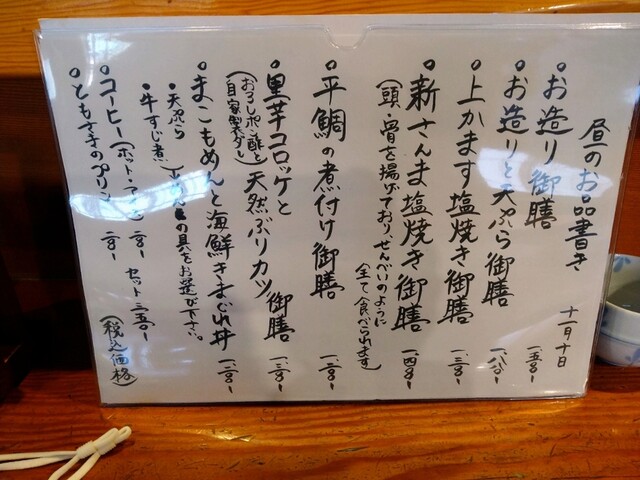 昼のお品書き 十一月十日
お造り御膳 一、五〇〇-
お造りと天ぷら御膳 一、八〇〇-
上かます塩焼き御膳 一、三〇〇-
新さんま塩焼き御膳 一、四〇〇-
(頭・骨を揚げており、せんべいのように
全て食べられます)
平鯛の煮付け御膳 一、二〇〇-
里芋コロッケと天然ぶりカツ御膳 一、三〇〇-
(おろしポン酢と
自家製ダレ)
まこもめんと海鮮きまぐれ丼 一、二〇〇-
・天ぷら
・牛すじ煮 の具をお選び下さい。
コーヒー(ホット・アイス) 二〇〇- セット三五〇-
ともさきのプリン 二〇〇-
(税込価格)